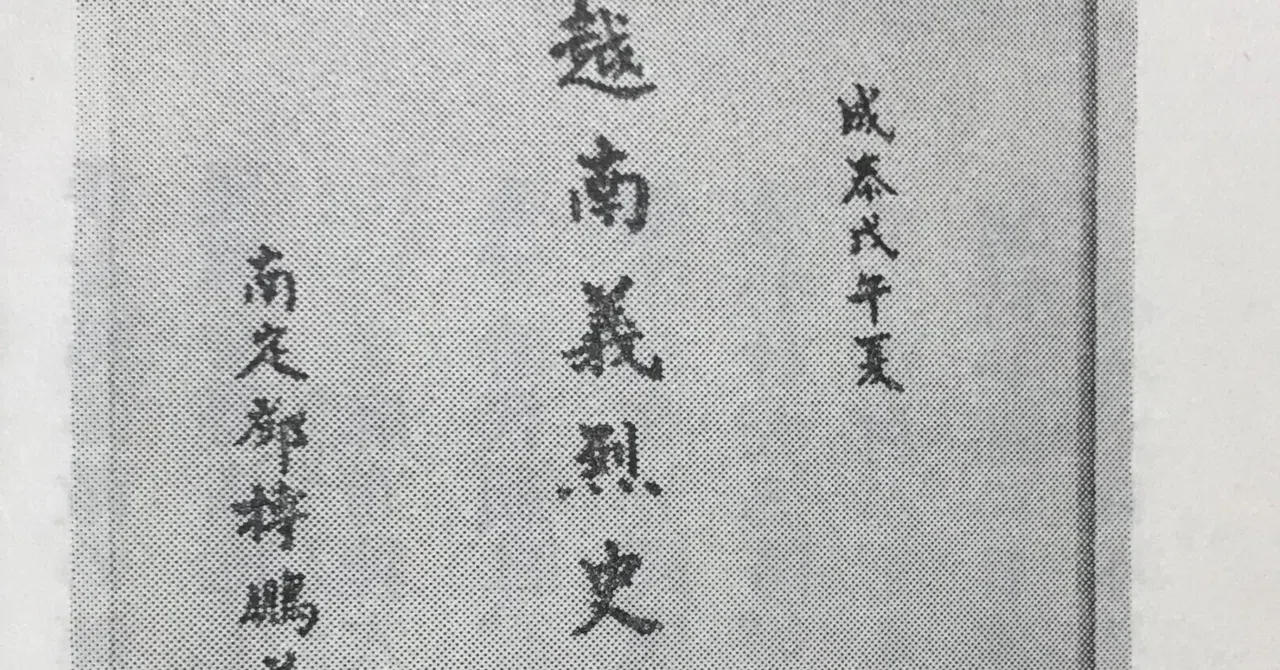 成泰戊午夏
越南義烈史
南定鄧搏鵬